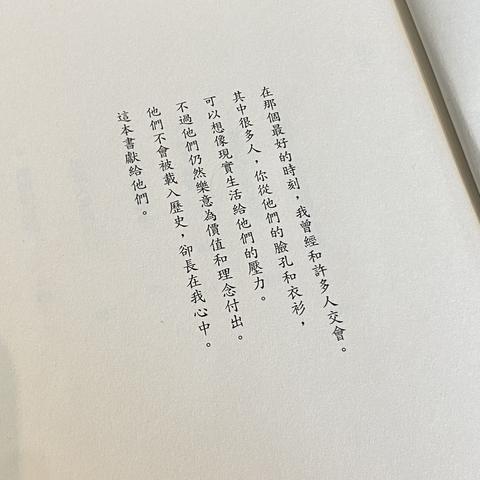 在那個最好的時刻，我曾經和許多人交會。
其中很多人，你從他們的臉孔和衣衫，
可以想像現實生活給他們的壓力。
不過他們仍然樂意為價值和理念付出。
他們不會被載入歷史，卻長在我心中。
這本書獻給他們。